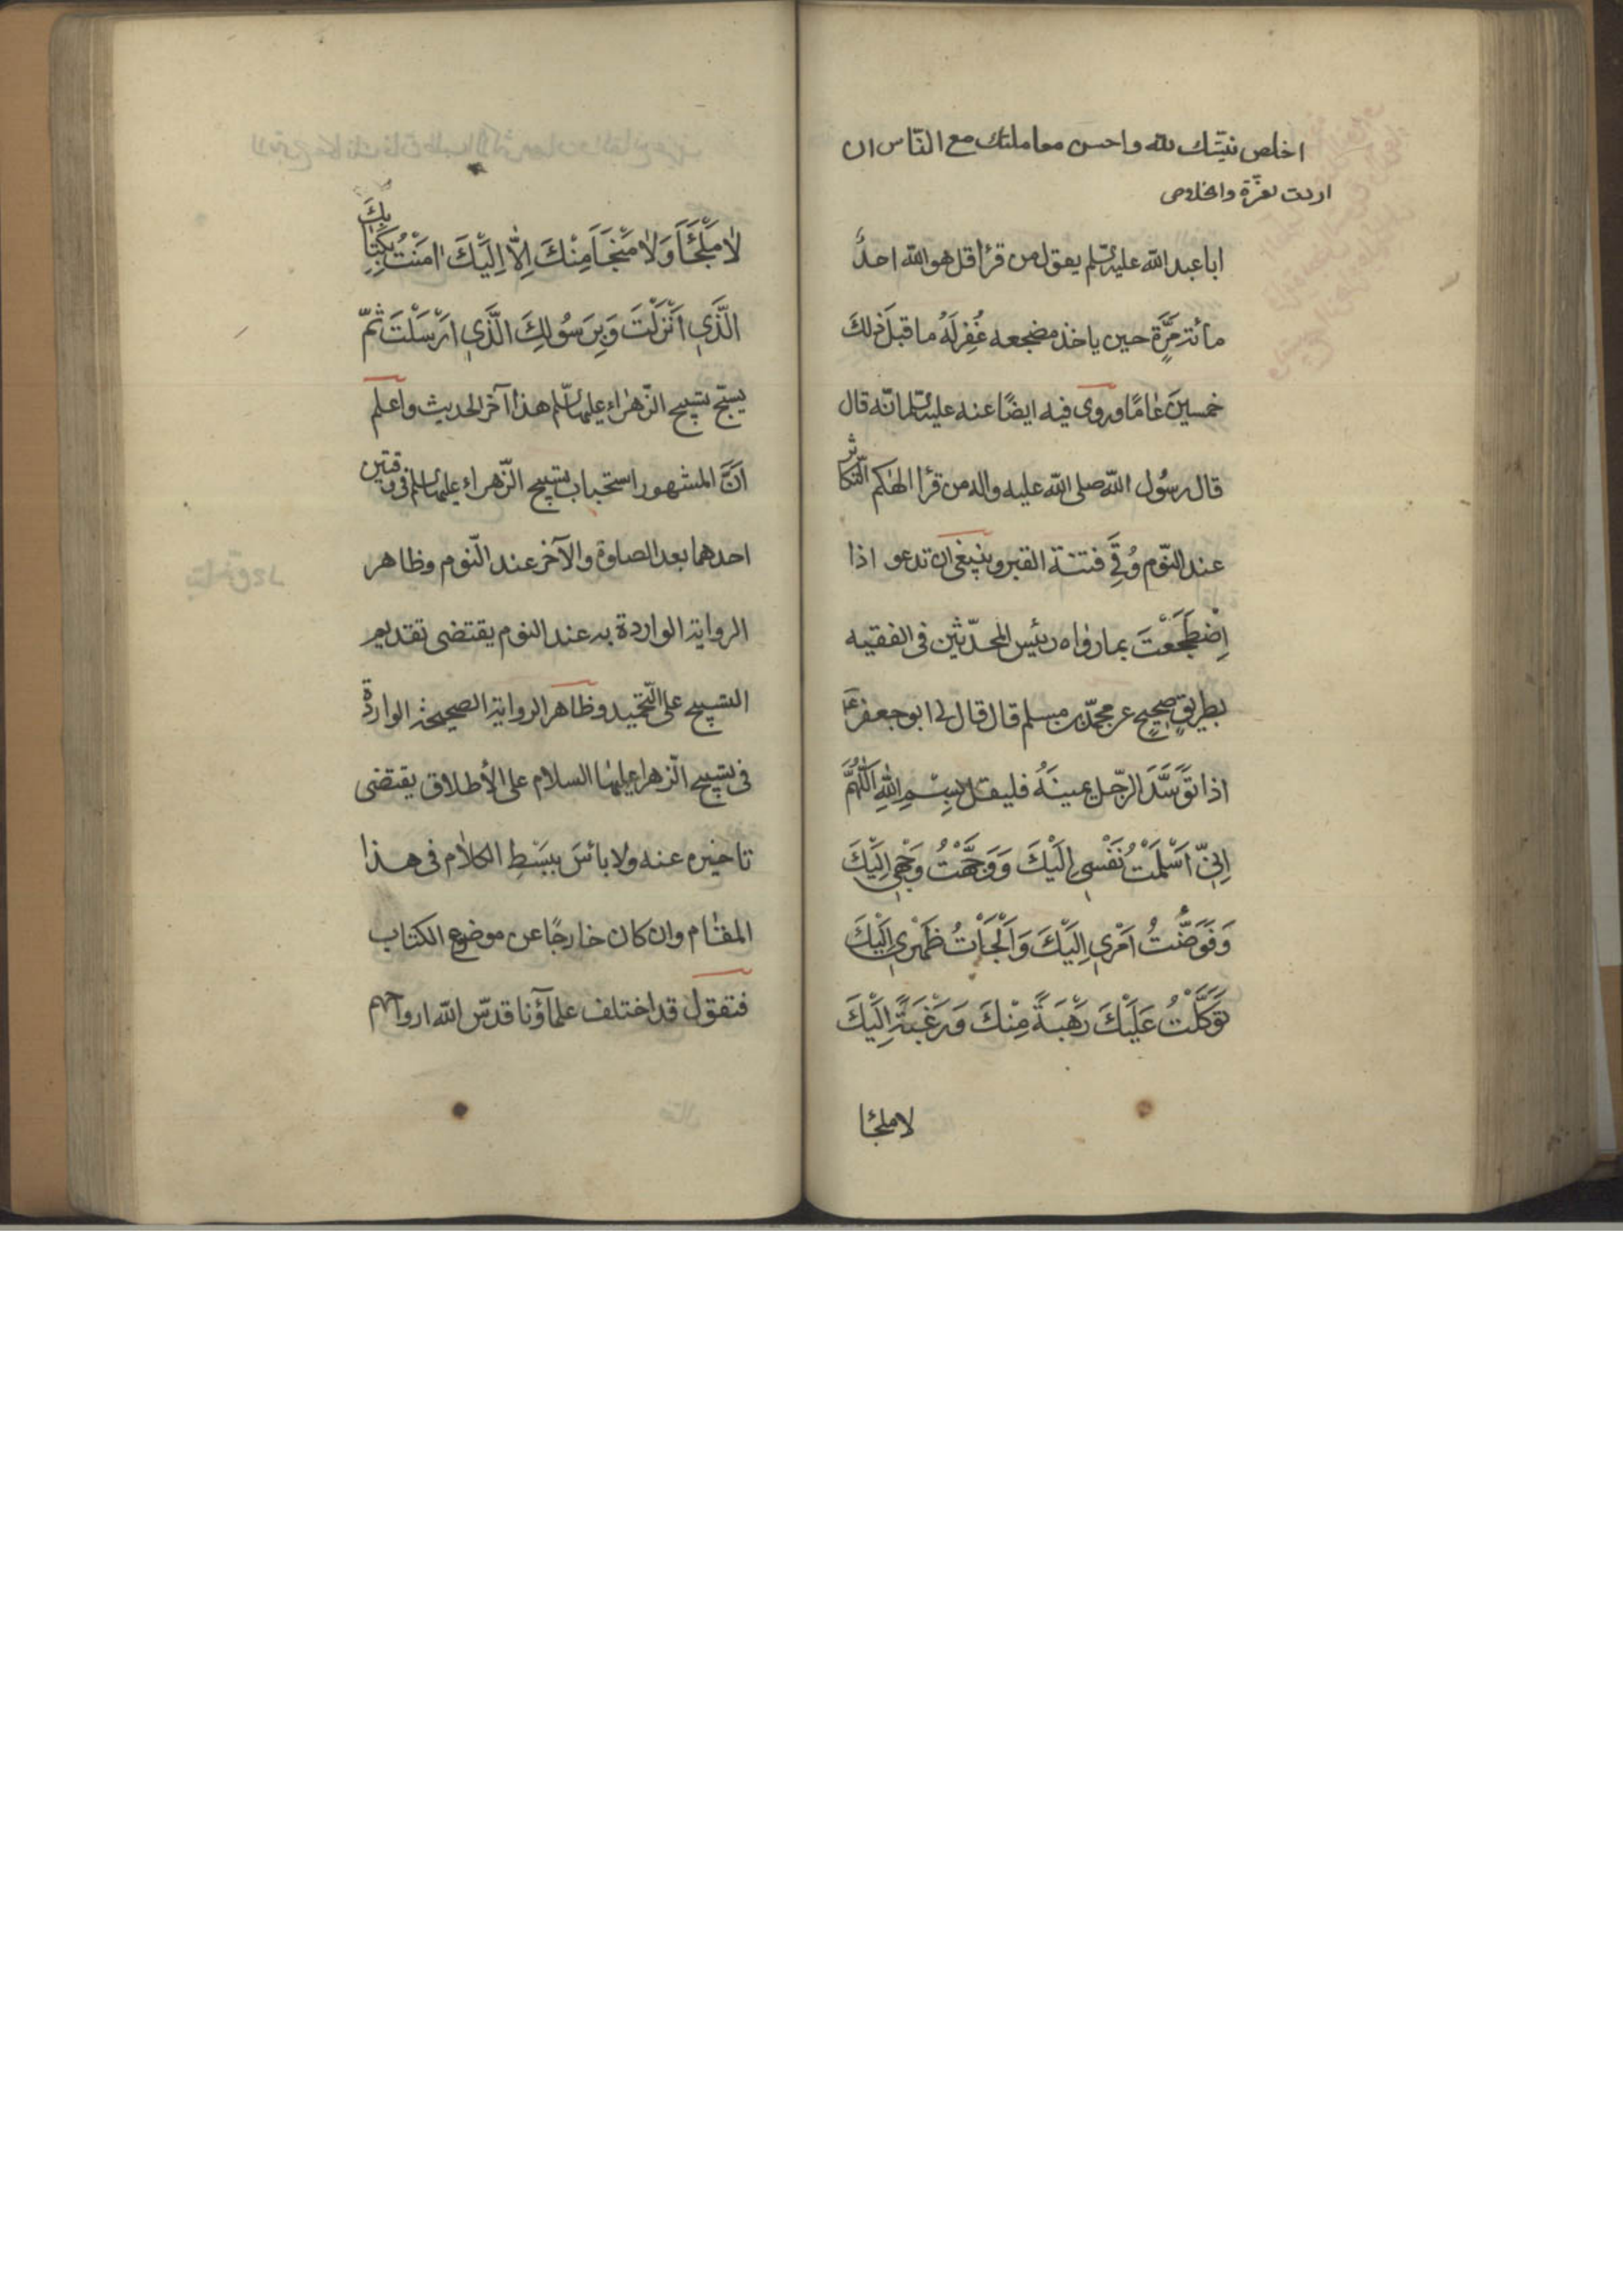 اخلص نيتك لله واحسن معاملتك مع الناس ان
اردت لعزة والخلوص
ابا عبد الله عليه السلم يقول من قرأ قل هو الله احدٌ
مائة مَرَّةٍ حين ياخذ مضجعه غُفِرَ لَهُ ما قبلَ ذلكَ
خمسينَ عامًا وروى فيه ايضًا عنه عليه السلم انّه قال
قال رسُول الله صلى الله عليه واله من قرأ الهٰكم التّكاثر
عند النّوم وُقِيَ فتنة القبر وينبغى ان تدعو اذا
اِضْطَجَعْتَ بما رواه رئيس المحدّثين فى الفقيه
بطريقٍ صحيحٍ عن محمّد بن مسلم قال قال لى ابو جعفر ع
اذا تَوَسَّدَ الرّجل يمينَهُ فليقل بِسْمِ اللهِ اَللّٰهُمَّ
اِنّى اَسْلَمْتُ نَفْسِى اِلَيْكَ وَوَجَّهْتُ وَجْهِى اِلَيْكَ
وَفَوَّضْتُ اَمْرِى اِلَيْكَ وَاَلْجَأْتُ ظَهْرِى اِلَيْكَ
تَوَكَّلْتُ عَلَيْكَ رَهْبَةً مِنْكَ وَرَغْبَةً اِلَيْكَ
لا ملجئا
لا مَلْجَئَاَ وَلا مَنْجَاَ مِنْكَ اِلّا اِلَيْكَ اٰمَنْتُ بِكِتابِكَ
الَّذِى اَنْزَلْتَ وَبِرَسُولِكَ الَّذِى اَرْسَلْتَ ثمّ
يسبّح تسبيح الزّهراء عليها السّلم هذا آخر الحديث واعلم
اَنَّ المشهور استحباب تسبيح الزّهراء عليها السلم فى وقتين
احدهما بعد الصلوة والآخر عند النّوم وظاهر
الرواية الواردة به عند النوم يقتضى تقديم
التسبيح على التّحميد وظاهر الرواية الصحيحة الواردة
فى تسبيح الزهرا عليها السلام على الأطلاق يقتضى
تاخيره عنه ولا بائسَ ببَسْطِ الكلام فى هذا
المقام وان كان خارجًا عن موضوع الكتاب
فنقول قد اختلف علمآؤنا قدّس الله ارواحهم